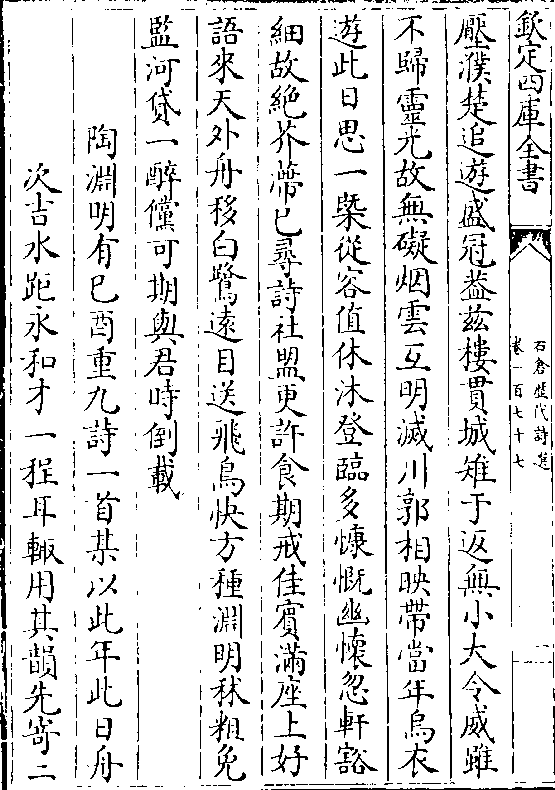 欽定四庫全書
石倉歷代詩選
卷一百七十七
壓濮楚追遊盛冠葢兹樓貫城雉于返無小大令威雖
不歸靈光故無礙烟雲互明滅川郭相映帶當年烏衣
遊此日思一槩從容值休沐登臨多慷慨幽懷忽軒豁
細故絶芥蔕已尋詩社盟更許食期戒佳賓滿座上好
語來天外舟移白鷺遠目送飛鳥快方種淵明秫粗免
監河貸一醉儻可期與君時倒載
陶淵明有已酉重九詩一首某以此年此日舟
次吉水距永和才一程耳輙用其韻先寄二